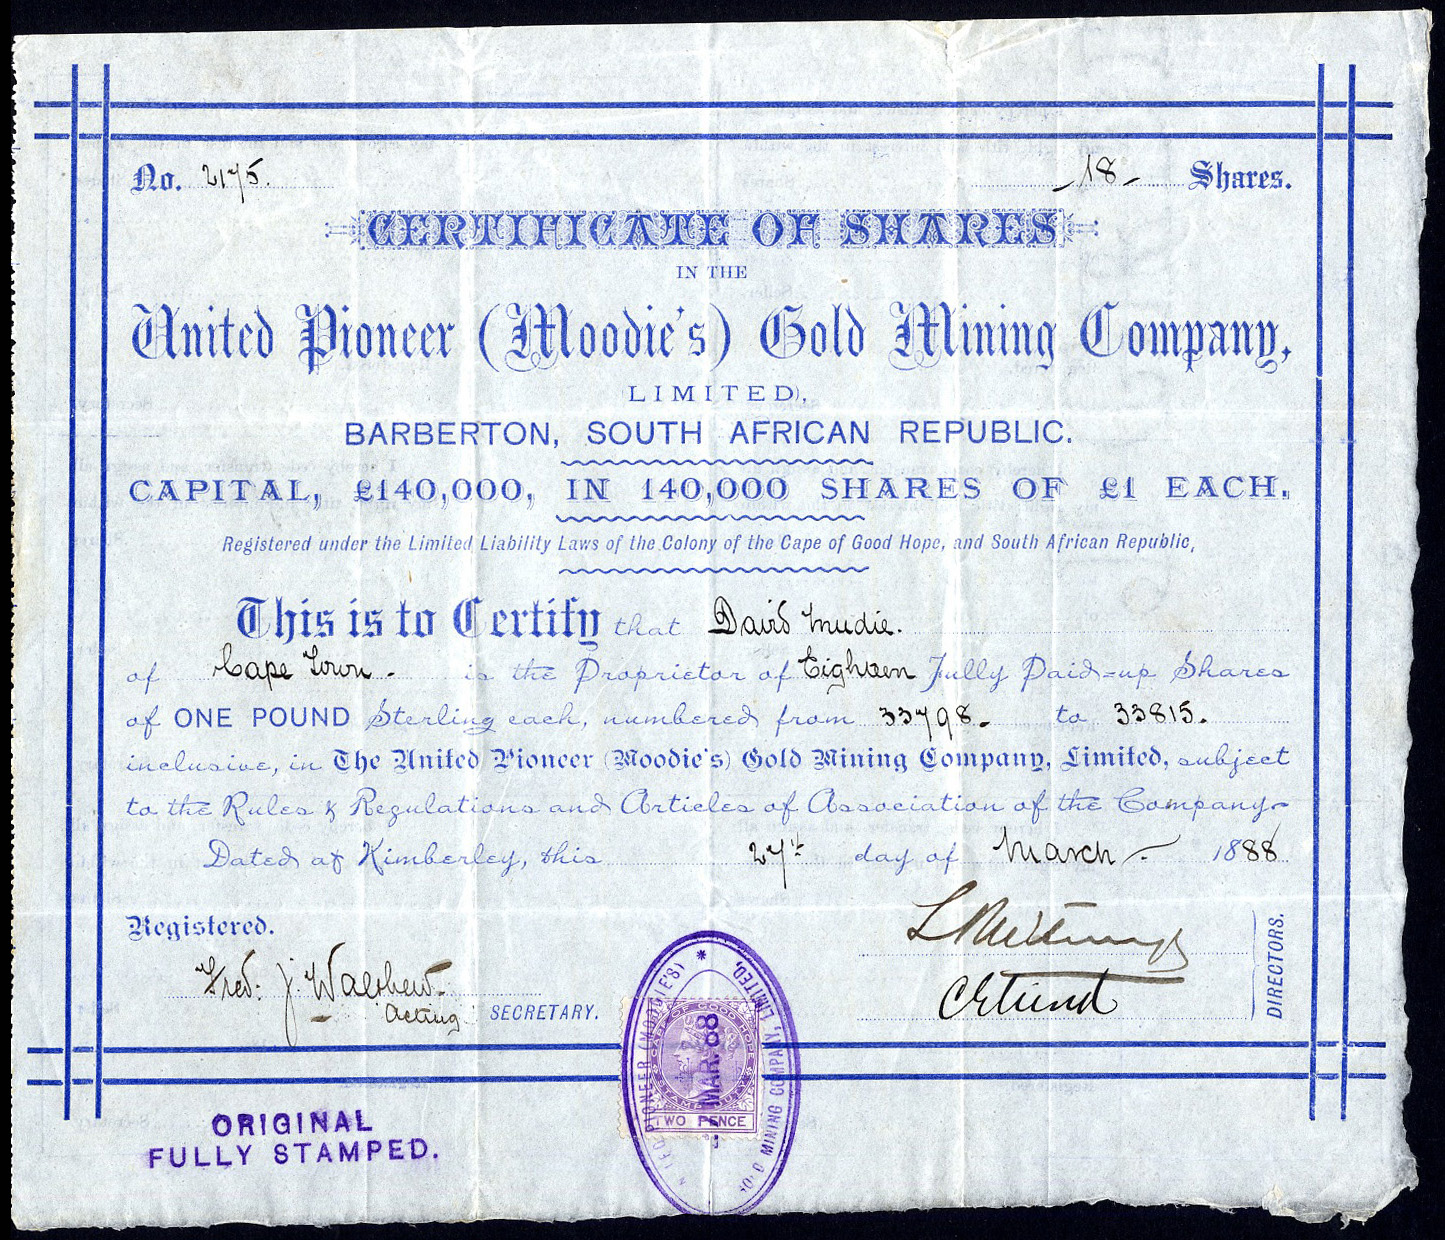 No. 2175. -18- Shares.
CERTIFICATE OF SHARES
IN THE
United Pioneer (Moodie's) Gold Mining Company,
LIMITED),
BARBERTON, SOUTH AFRICAN REPUBLIC.
CAPITAL, £140,000, IN 140,000 SHARES OF £1 EACH.
Registered under the Limited Liability Laws of the Colony of the Cape of Good Hope, and South African Republic,
This is to Certify that David Mudie.
of Cape Town. is the Proprietor of Eighteen Fully Paid=up Shares
of ONE POUND Sterling each, numbered from 33798. to 33815.
inclusive, in The United Pioneer (Moodie's) Gold Mining Company, Limited, subject
to the Rules & Regulations and Articles of Association of the Company
Dated at Kimberley, this 27th day of March 1888
Registered.
Fred: J. Acting SECRETARY.
DIRECTORS.
PIONEER (MOODIE'S) MINING COMPANY, LIMITED,
MAR. 88
TWO PENCE
ORIGINAL
FULLY STAMPED.